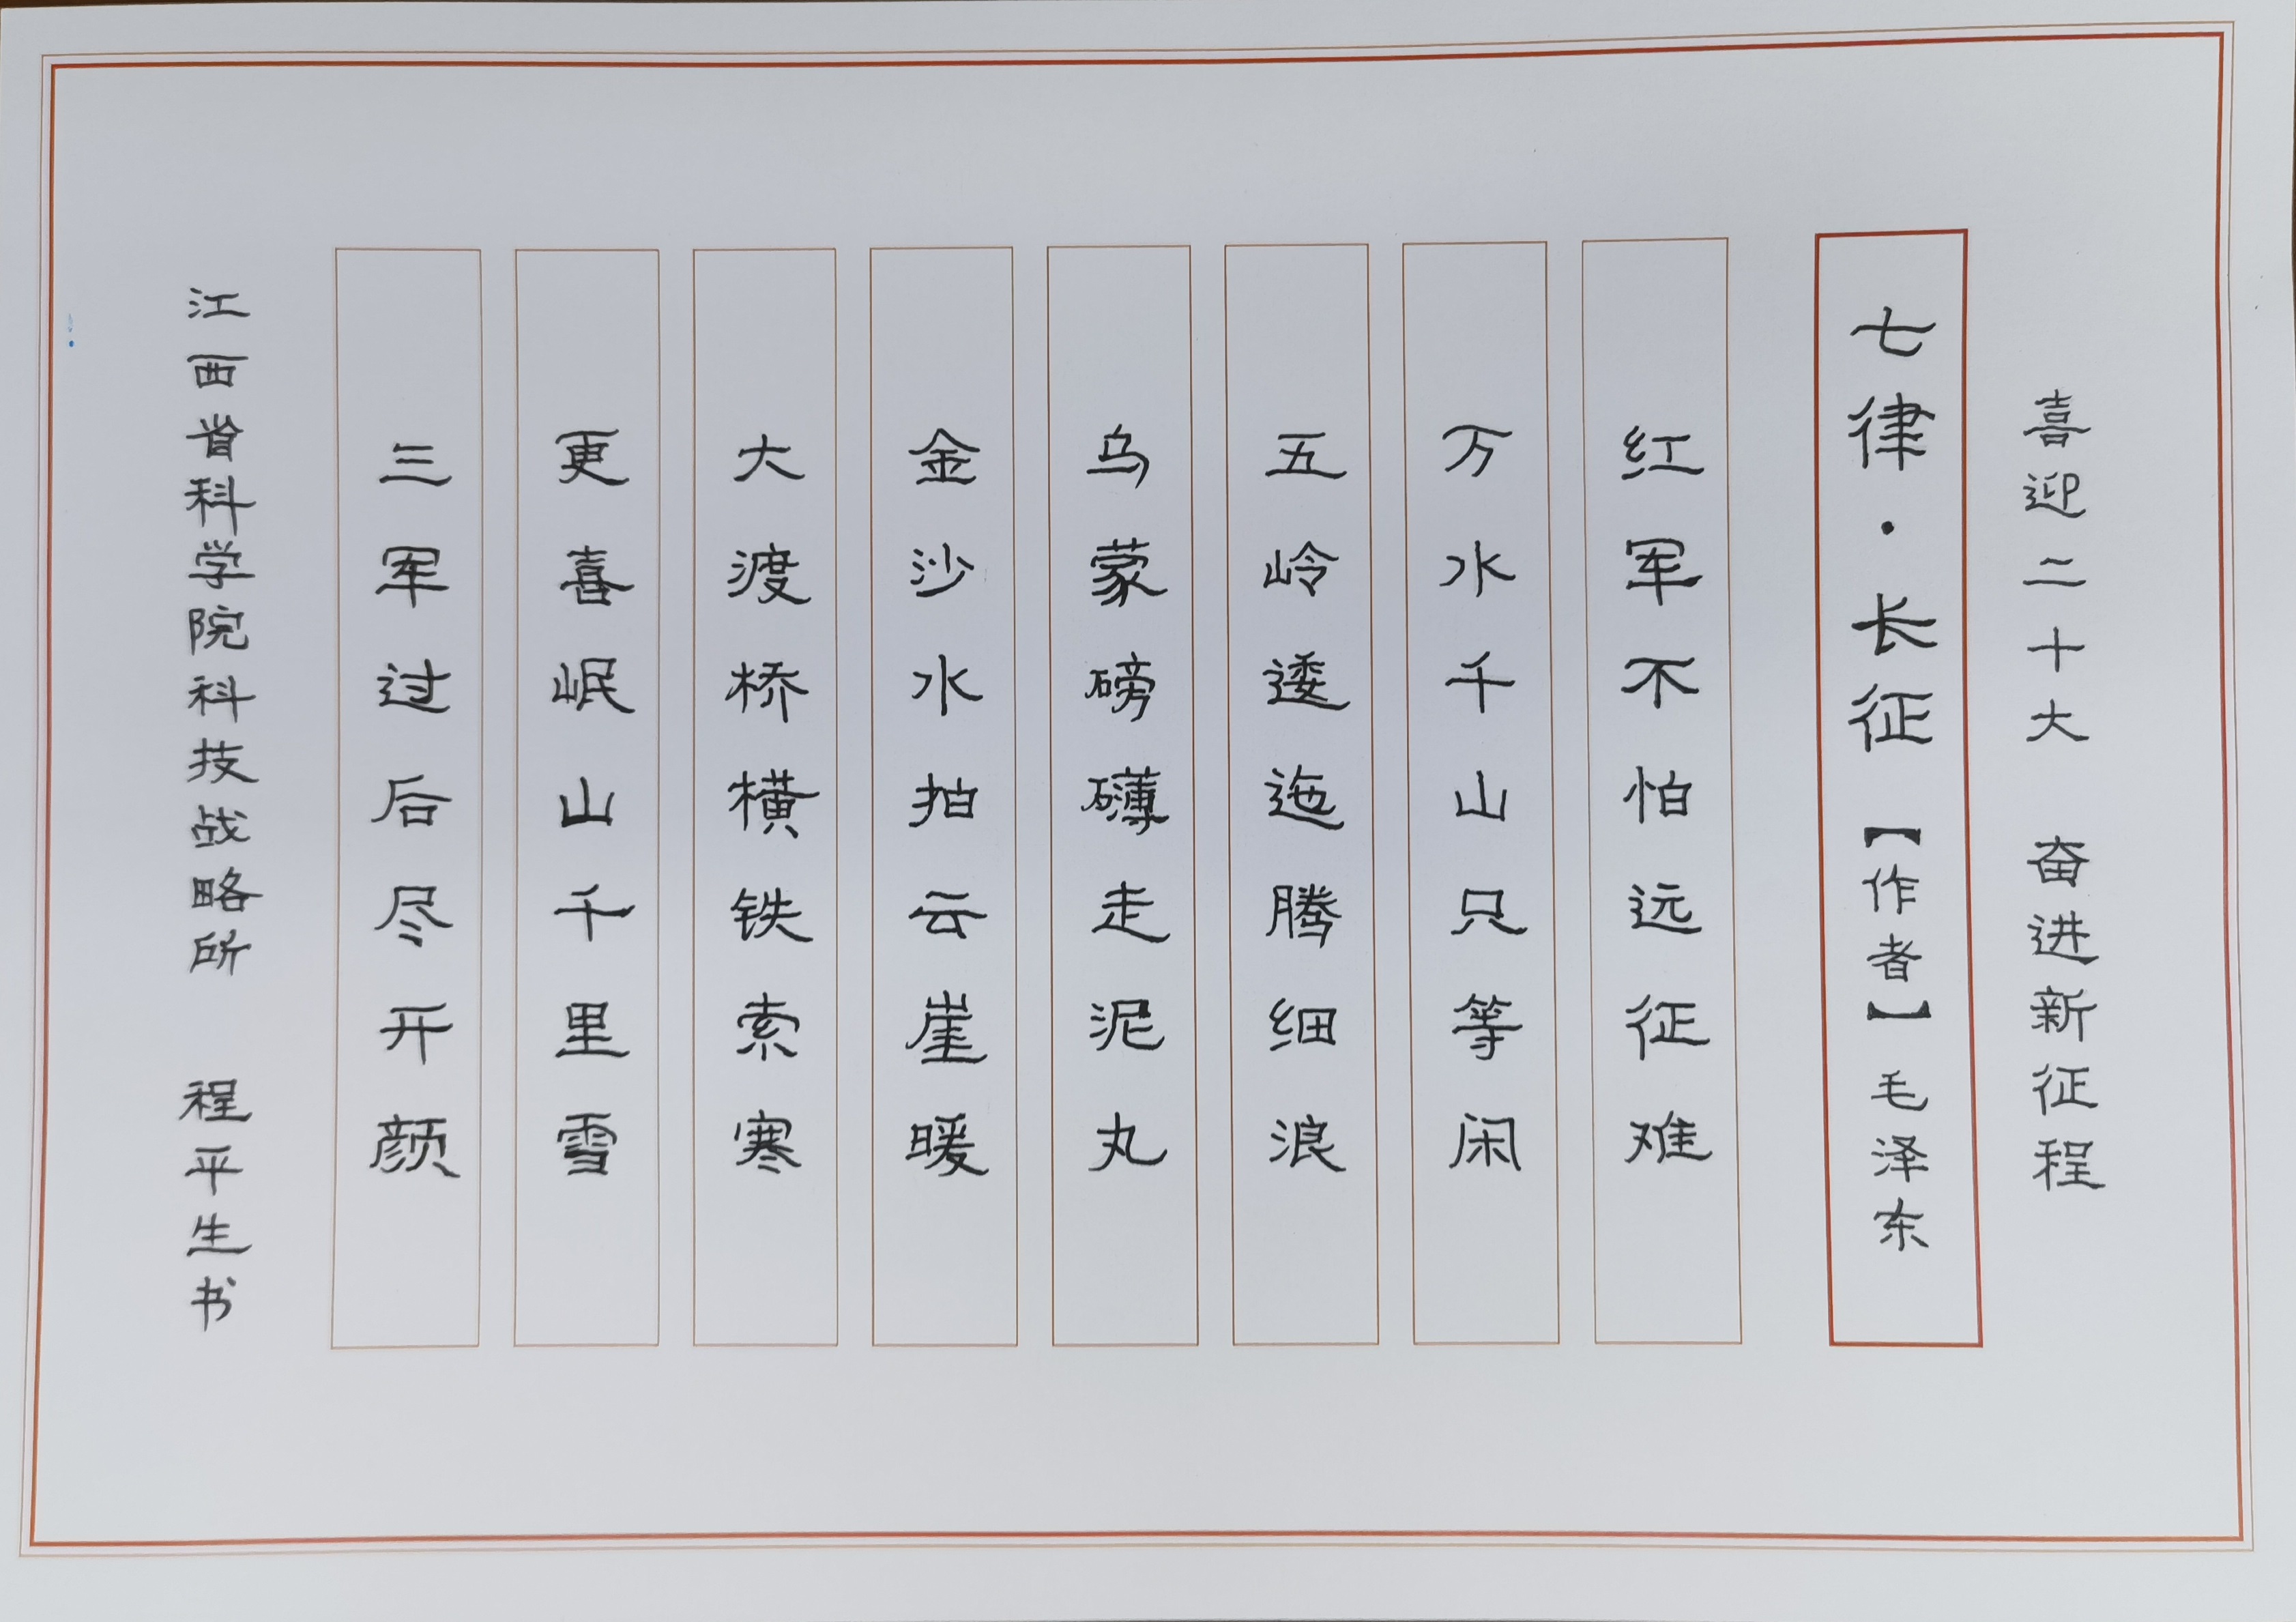 喜迎二十大 奋进新征程
七律·长征【作者】毛泽东
红军不怕远征难
万水千山只等闲
五岭逶迤腾细浪
乌蒙磅礴走泥丸
金沙水拍云崖暖
大渡桥横铁索寒
更喜岷山千里雪
三军过后尽开颜
江西省科学院科技战略所 程平生书